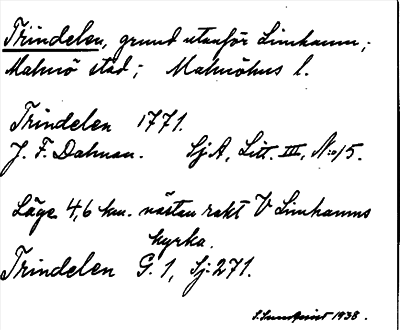 Trindelen, grund utanför Limhamn,;
Malmö stad; Malmöhus l.
Trindelen 1771.
J. F. Dalman. Sj.A, Litt. III, N:o 15.
Läge 4,6 km. nästan rakt V Limhamns
kyrka.
Trindelen G. 1, Sj. 271.
1938.